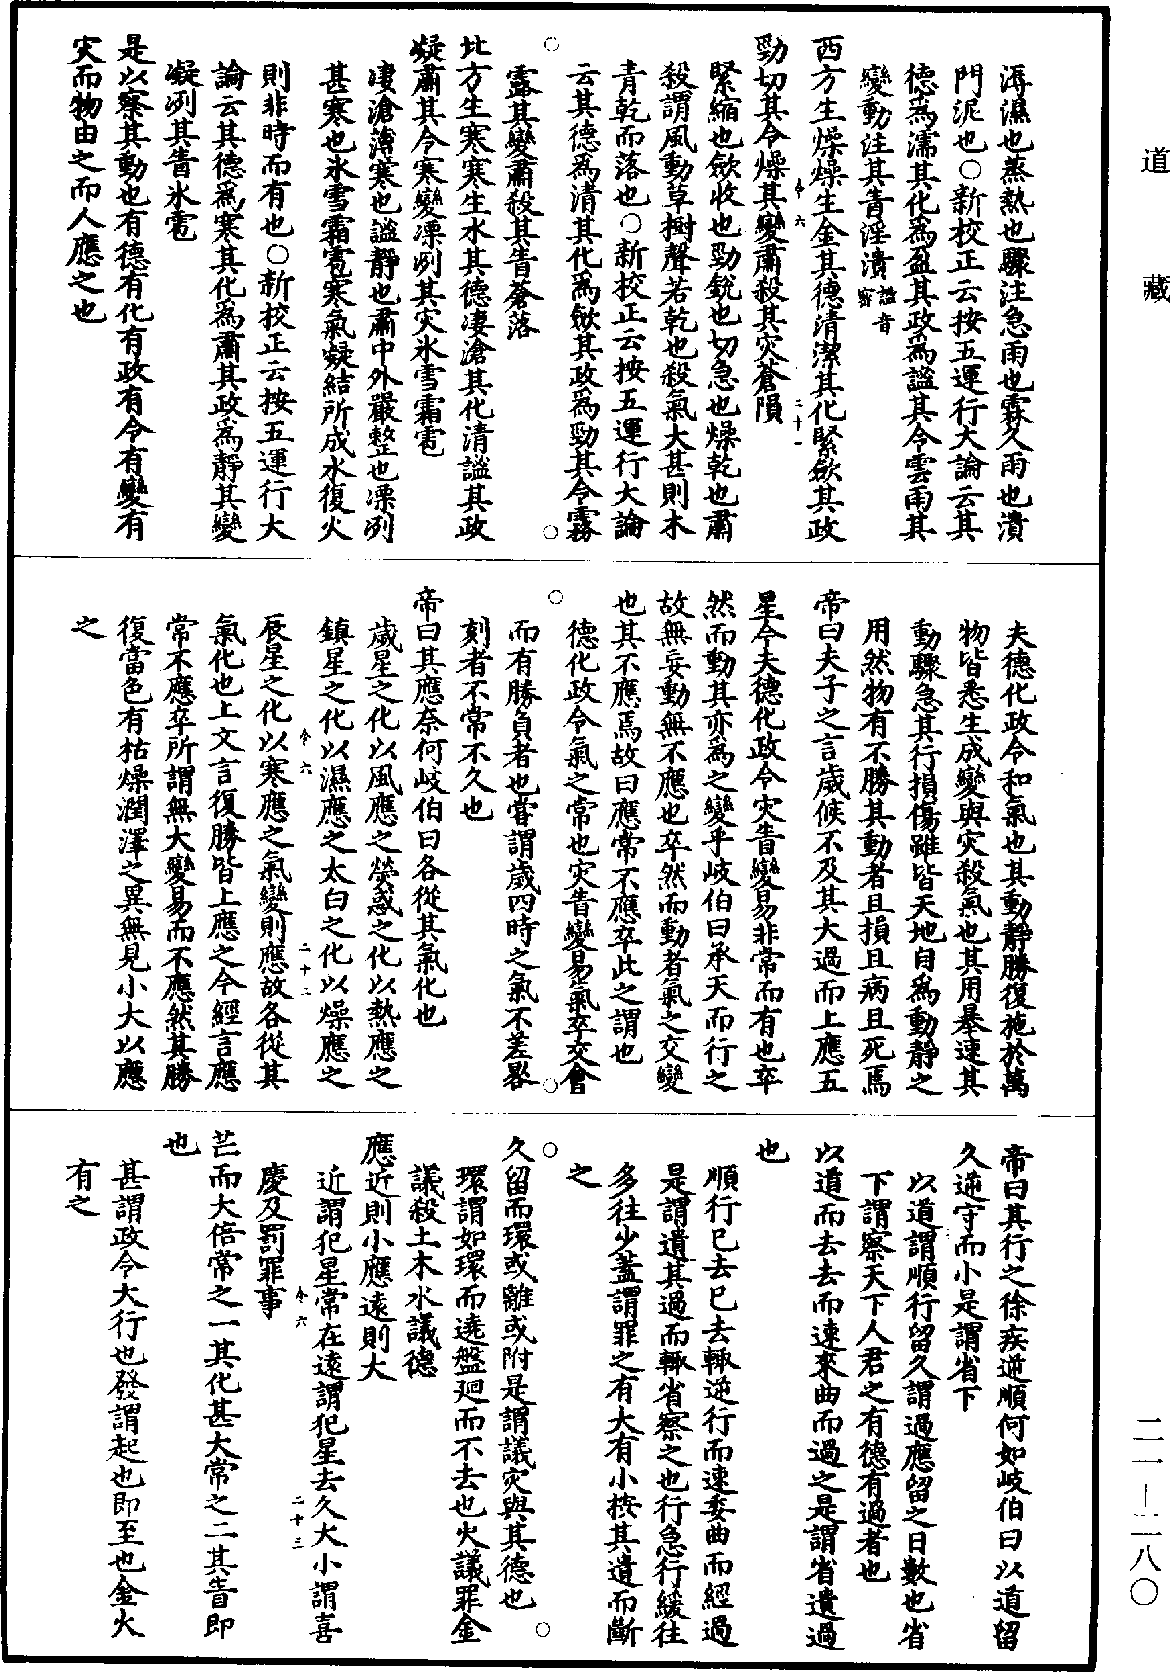 道藏
溽濕也蒸熱也驟注急雨也霖久雨也潰
門泥也○新校正云按五運行大論云其
德爲濡其化爲盈其政爲謐其令雲雨其
變動注其眚淫潰謐音密
西方生燥燥生金其德清潔其化緊斂其政
勁切其令燥其變肅殺其灾蒼隕
緊縮也斂收也勁銳也切急也燥乾也肅
殺謂風動草樹聲若乾也殺氣大甚則木
青乾而落也○新校正云按五運行大論
云其德爲清其化爲斂其政爲勁其令霧
露其變肅殺其眚蒼落
北方生寒寒生水其德淒滄其化清謐其政
凝肅其令寒變凓冽其灾氷雪霜雹
淒滄薄寒也謐靜也肅中外嚴整也凓冽
甚寒也氷雪霜雹寒氣凝結所成水復火
則非時而有也○新校正云按五運行大
論云其德爲寒其化爲肅其政爲靜其變
凝冽其眚氷雹
是以察其動也有德有化有政有令有變有
灾而物由之而人應之也
夫德化政令和氣也其動靜勝復施於萬
物皆悉生成變與灾殺氣也其用暴速其
動驟急其行損傷雖皆天地自爲動靜之
用然物有不勝其動者且損且病且死焉
帝曰夫子之言歲候不及其大過而上應五
星今夫德化政令灾眚變易非常而有也卒
然而動其亦爲之變乎岐伯曰承天而行之
故無妄動無不應也卒然而動者氣之交變
也其不應焉故曰應常不應卒此之謂也
德化政令氣之常也灾眚變易氣卒交會
而有勝負者也甞謂歲四時之氣不差晷
刻者不常不久也
帝曰其應奈何岐伯曰各從其氣化也
歲星之化以風應之熒惑之化以熱應之
鎮星之化以濕應之太白之化以燥應之
辰星之化以寒應之氣變則應故各從其
氣化也上文言復勝皆上應之今經言應
常不應卒所謂無大變易而不應然其勝
復當色有枯燥潤澤之異無見小大以應
之
帝曰其行之徐疾逆順何如岐伯曰以道留
久逆守而小是謂省下
以道謂順行留久謂過應留之日數也省
下謂察天下人君之有德有過者也
以道而去去而速來曲而過之是謂省遺過
也
順行已去已去輒逆行而速委曲而經過
是謂遺其過而輒省察之也行急行緩往
多往少蓋謂罪之有大有小按其遺而斷
之
久留而環或離或附是謂議灾與其德也
環謂如環而遶盤迴而不去也火議罪金
議殺土木水議德
應近則小應遠則大
近謂犯星常在遠謂犯星去久大小謂喜
慶及罰罪事
芒而大倍常之一其化甚大常之二其眚即
也
甚謂政令大行也發謂起也即至也金火
有之
令六
二十一
令六
二十二
令六
二十三
二一—二八〇